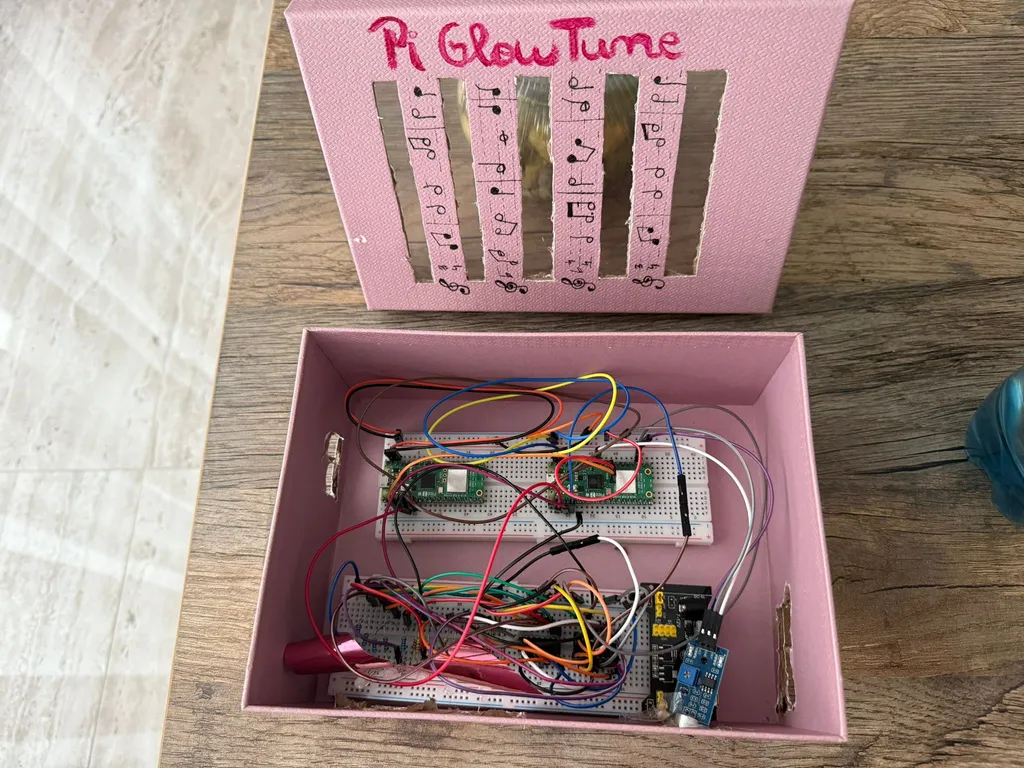 Pi GlowTune